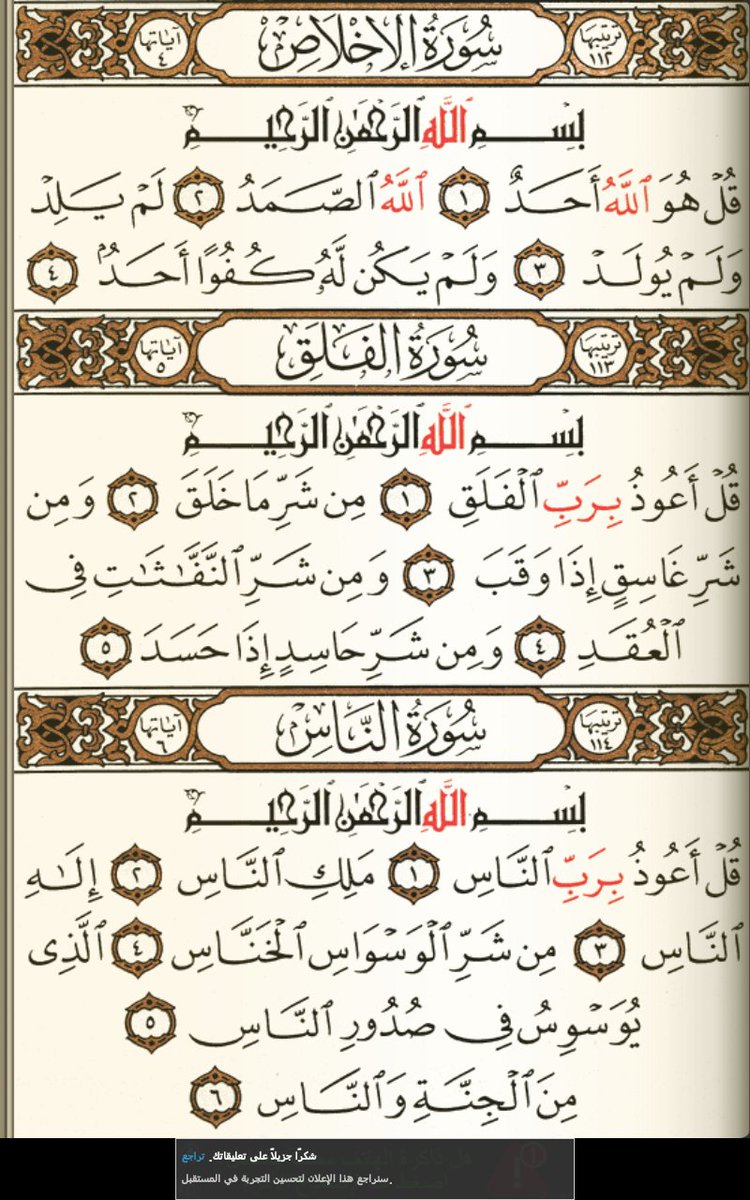 ترتيبها ١١٢ سُورَةُ الإِخْلَاصِ آياتها ٤
بِسْمِ ٱللَّهِ ٱلرَّحْمَٰنِ ٱلرَّحِيمِ
قُلْ هُوَ ٱللَّهُ أَحَدٌ ١ ٱللَّهُ ٱلصَّمَدُ ٢ لَمْ يَلِدْ
وَلَمْ يُولَدْ ٣ وَلَمْ يَكُن لَّهُۥ كُفُوًا أَحَدٌۢ ٤
ترتيبها ١١٣ سُورَةُ الفَلَقِ آياتها ٥
بِسْمِ ٱللَّهِ ٱلرَّحْمَٰنِ ٱلرَّحِيمِ
قُلْ أَعُوذُ بِرَبِّ ٱلْفَلَقِ ١ مِن شَرِّ مَا خَلَقَ ٢ وَمِن
شَرِّ غَاسِقٍ إِذَا وَقَبَ ٣ وَمِن شَرِّ ٱلنَّفَّٰثَٰتِ فِى
ٱلْعُقَدِ ٤ وَمِن شَرِّ حَاسِدٍ إِذَا حَسَدَ ٥
ترتيبها ١١٤ سُورَةُ النَّاسِ آياتها ٦
بِسْمِ ٱللَّهِ ٱلرَّحْمَٰنِ ٱلرَّحِيمِ
قُلْ أَعُوذُ بِرَبِّ ٱلنَّاسِ ١ مَلِكِ ٱلنَّاسِ ٢ إِلَٰهِ
ٱلنَّاسِ ٣ مِن شَرِّ ٱلْوَسْوَاسِ ٱلْخَنَّاسِ ٤ ٱلَّذِى
يُوَسْوِسُ فِى صُدُورِ ٱلنَّاسِ ٥
مِنَ ٱلْجِنَّةِ وَٱلنَّاسِ ٦
شكرًا جزيلاً على تعليقاتك. تراجع
سنراجع هذا الإعلان لتحسين التجربة في المستقبل.